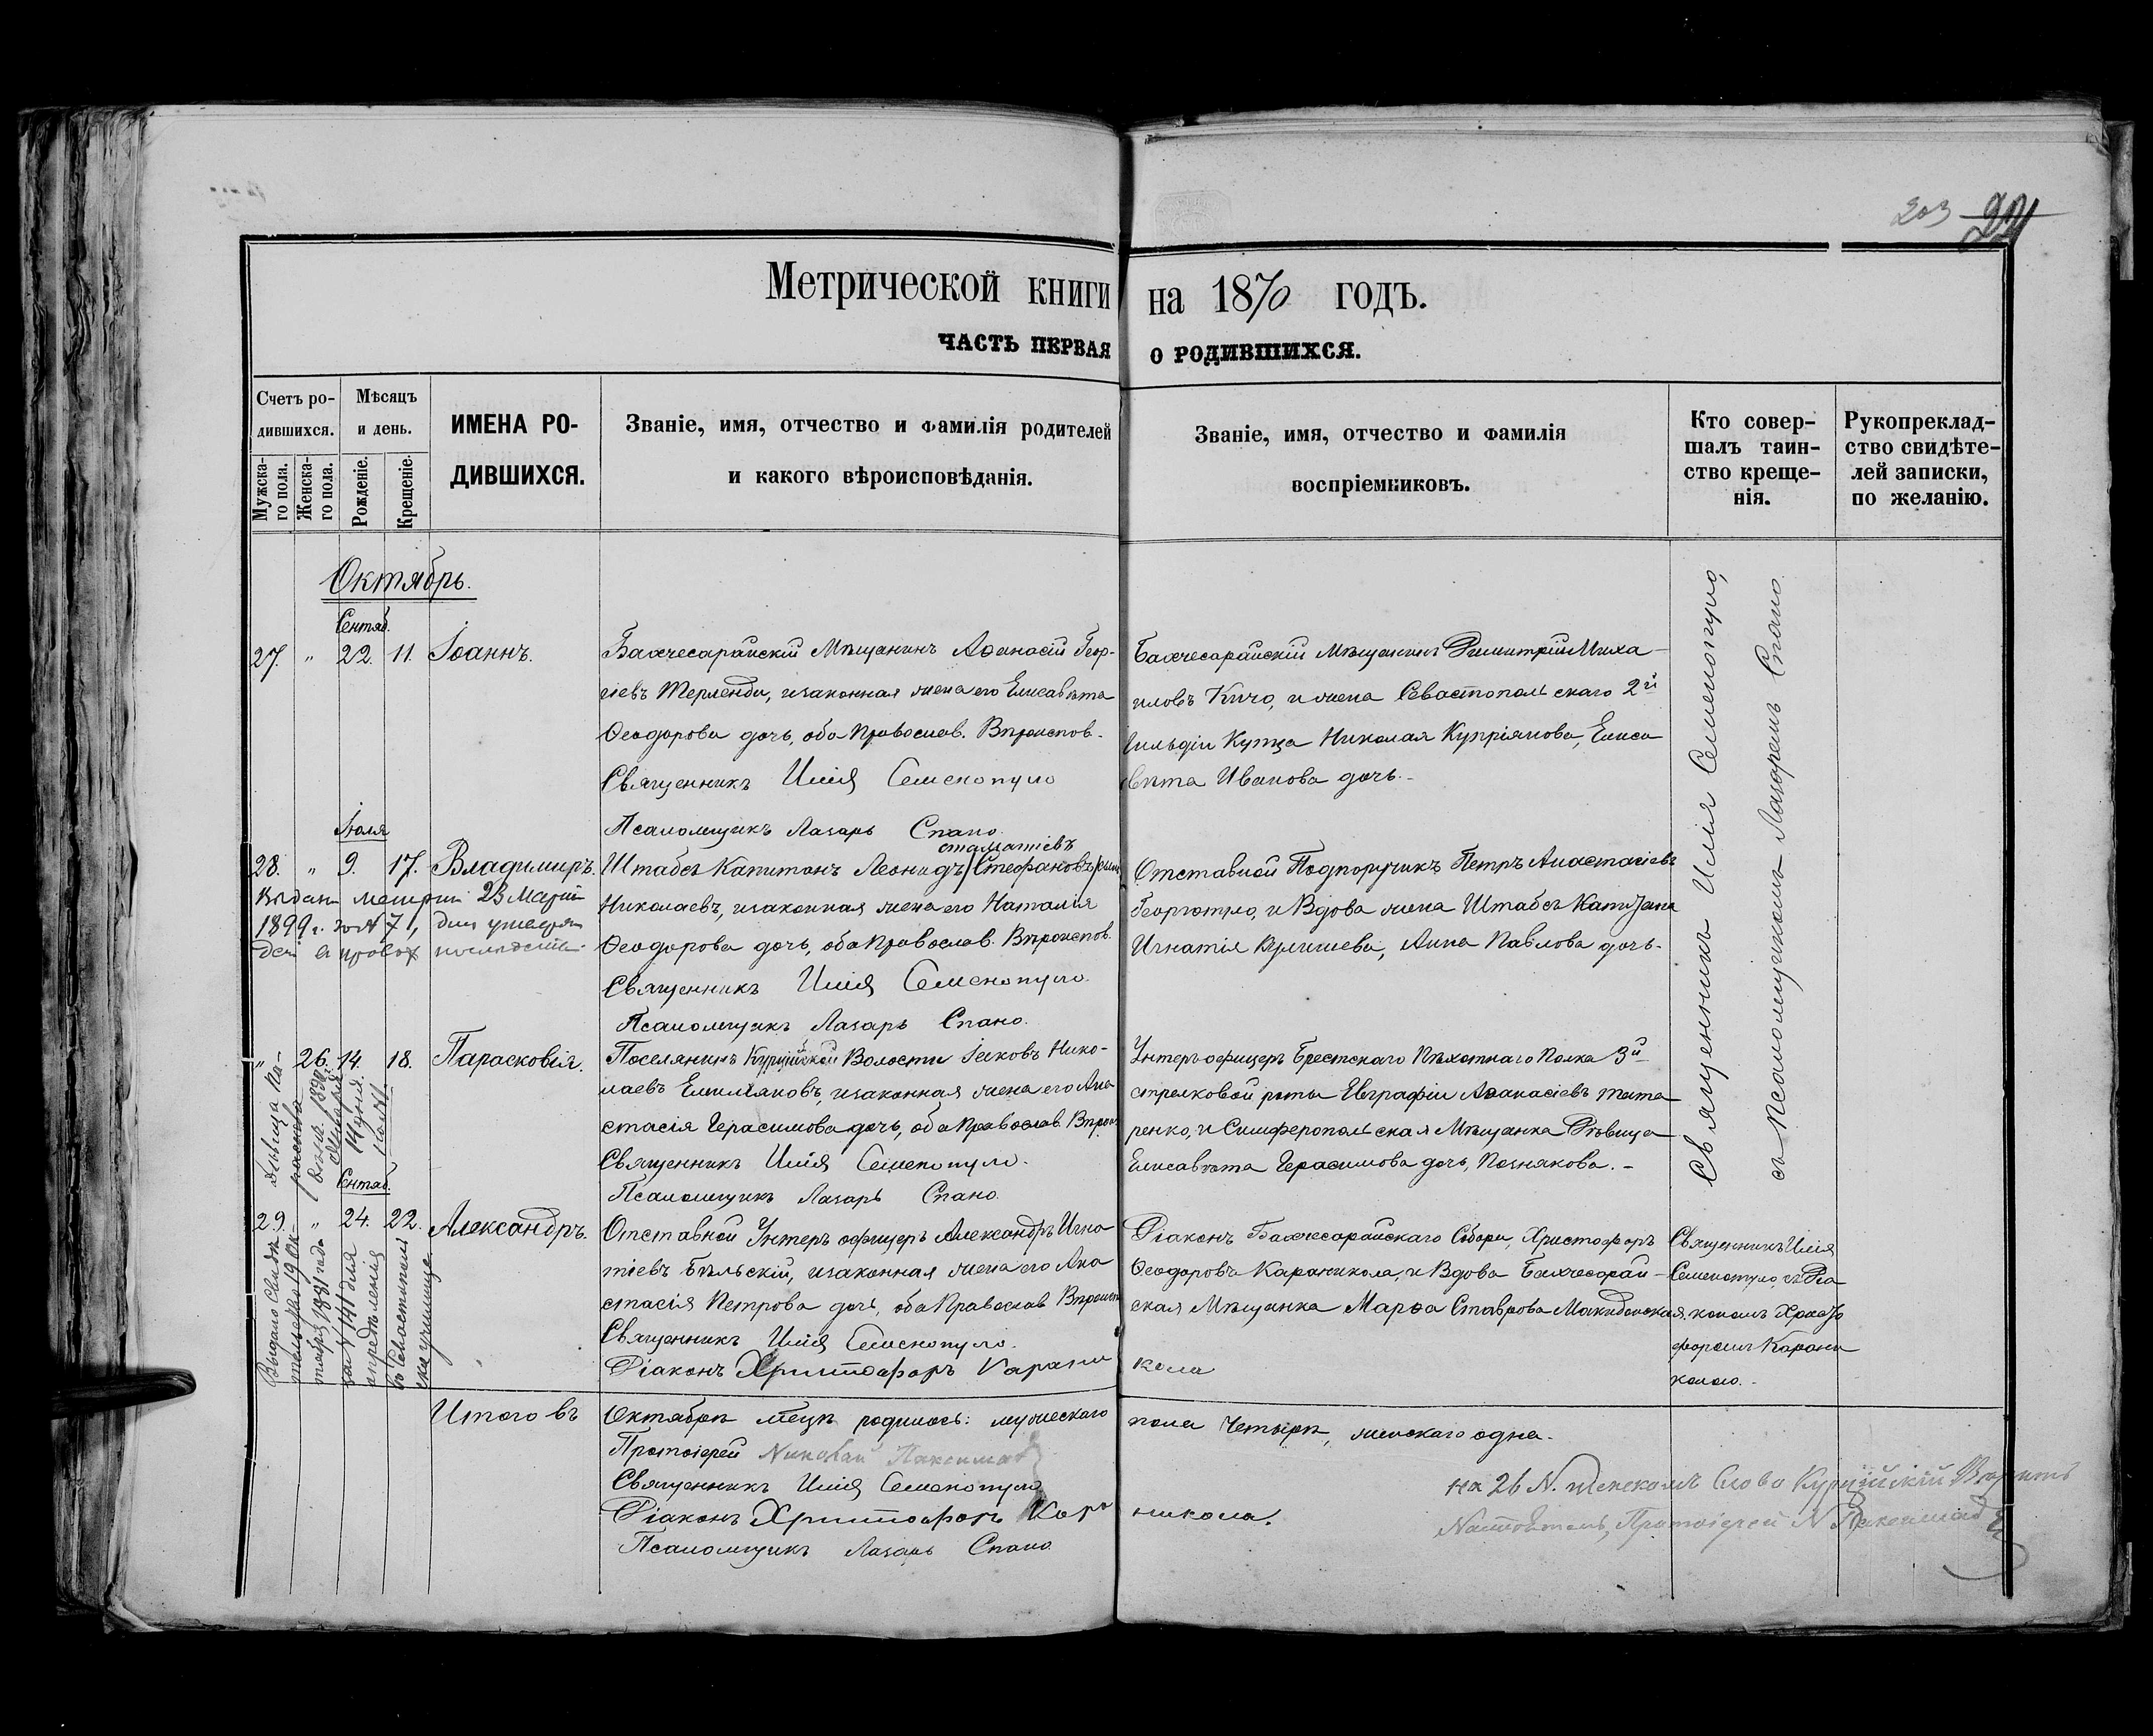 203 221
Метрической книги на 1870 годъ.
ЧАСТЬ ПЕРВАЯ О РОДИВШИХСЯ.
Счетъ родившихся.
Мужскаго пола.
Женскаго пола.
Мѣсяцъ и день.
Рожденіе.
Крещеніе.
ИМЕНА РО-
ДИВШИХСЯ.
Званіе, имя, отчество и фамилія родителей
и какого вѣроисповѣданія.
Званіе, имя, отчество и фамилія
воспріемниковъ.
Кто совер-
шалъ таин-
ство креще-
нія.
Рукоприклад-
ство свидѣте-
лей записки,
по желанію.
Октябрь.
Сентяб.
27. " 22. 11. Іоаннъ.
Бахчесарайскій Мѣщанинъ Аѳанасій Геор-
гіевъ Терленди, и законная жена его Елисавѣта
Ѳеодорова дочь, оба Православ. Вѣроиспов.
Священникъ Илія Семенопуло
Псаломщикъ Лазарь Спано
Бахчесарайскій Мѣщанинъ Димитрій Миха-
иловъ Кичо, и жена Севастопольскаго 2й
Гильдіи Купца Николая Купріянова, Елиса
вѣта Иванова дочь.-
Священникъ Илія Семенопуло,
съ Псаломщикомъ Лазаремъ Спано.
Іюля
28. " 9. 17. Владимиръ.
23 Марта
1899 г. за № 71,
Штабсъ Капитанъ Леонидъ /Стефановъ/ сынъ
стаматіевъ
Николаевъ, и законная жена его Наталія
Ѳеодорова дочь, оба Православ. Вѣроиспов.
Священникъ Илія Семенопуло.
Псаломщикъ Лазарь Спано.
Отставной Подпоручикъ Петръ Анастасіевъ
Георгопуло, и Вдова жена Штабсъ Капитана
Игнатія, Анна Павлова дочь.
" 26. 14. 18. Парасковія.
Поселянинъ Курційской Волости Іаковъ Нико-
лаевъ Емиліановъ, и законная жена его Ана
стасія Герасимова дочь, оба Православ. Вѣроис.
Священникъ Илія Семенопуло.
Псаломщикъ Лазарь Спано
Унтеръ-офицеръ Брестскаго Пѣхотнаго Полка 3й
стрелковой роты Евграфій Аѳанасіевъ Тата
ренко, и Симферопольская Мѣщанка Дѣвица
Елисавѣта Герасимова дочь, Познякова.-
Сентяб.
29. " 24. 22. Александръ.
Отставной Унтеръ офицеръ Александръ Игна
тіевъ Бѣльскій, и законная жена его Ана
стасія Петрова дочь, оба Православ Вѣроисп
Священникъ Илія Семенопуло.
Діаконъ Христофоръ Карани кола
Діаконъ Бахчесарайскаго Собора, Христофоръ
Ѳеодоровъ Караникола, и Вдова Бахчесарай-
ская Мѣщанка Марѳа Ставрова Македонская.
Священникъ Илія
Семенопуло, съ Діа
кономъ Христо
форомъ Карани
колою.-
Итого въ Октябрѣ мѣсцѣ родилось: мужескаго пола Четыре, женскаго одна.
Протоіерей Николай Паксимад
Священникъ Илія Семенопуло
Діаконъ Христофоръ Кара никола.
Псаломщикъ Лазарь Спано
на 26 N. женскомъ Слово Курційскій
Протоіерей N Паксимад